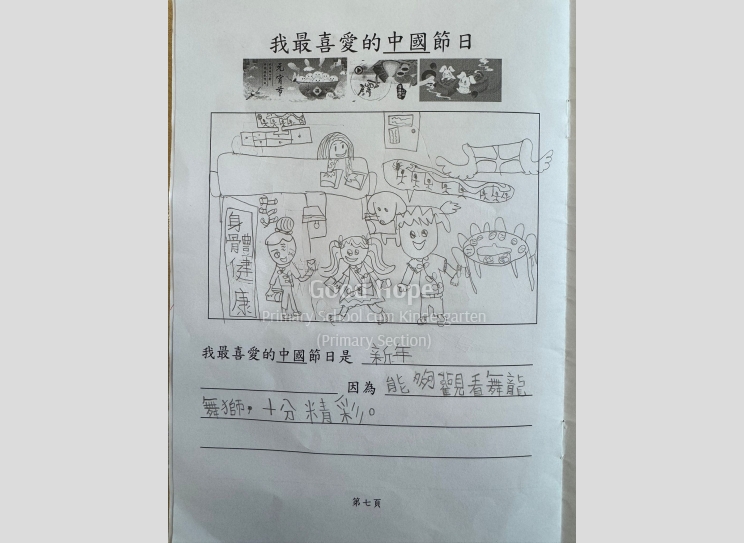 我最喜愛的中國節日
身體健康
Good Hope
Primary School cum Kindergarten
(Primary Section)
我最喜愛的中國節日是 新年
因為 能夠觀看舞龍
舞獅，十分精彩。
第七頁